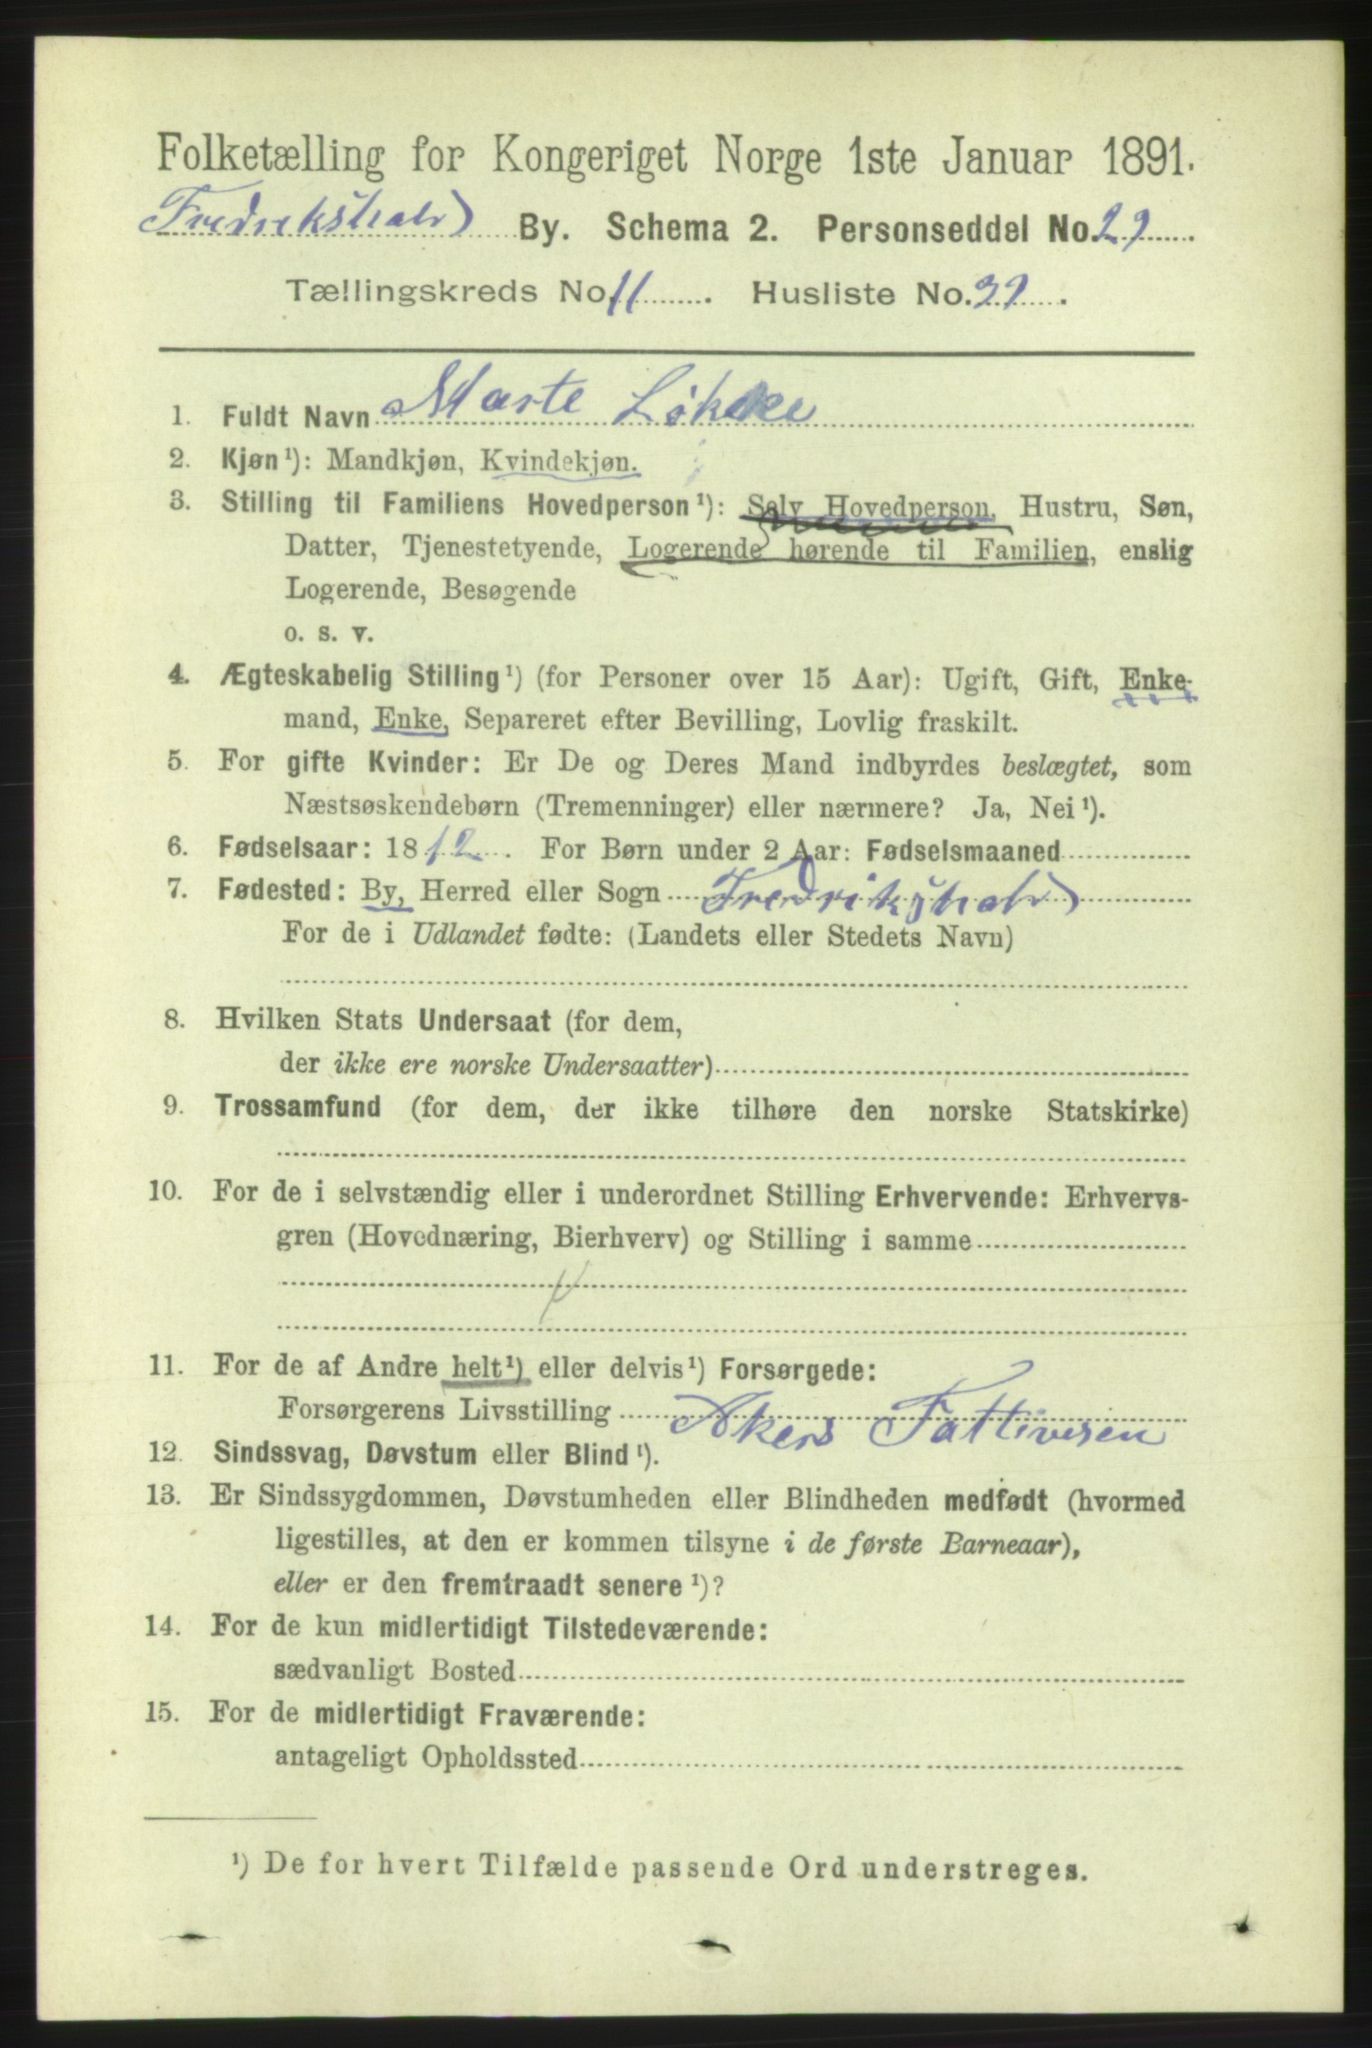 Folketælling for Kongeriget Norge 1ste Januar 1891.
Fredrikshald By. Schema 2. Personseddel No. 29
Tællingskreds No. 11. Husliste No. 39.
1. Fuldt Navn Marte Løkke
2. Kjøn ¹): Mandkjøn, Kvindekjøn.
3. Stilling til Familiens Hovedperson ¹): Selv Hovedperson, Hustru, Søn,
Datter, Tjenestetyende, Logerende hørende til Familien, enslig
Logerende, Besøgende
o. s. v.
4. Ægteskabelig Stilling ¹) (for Personer over 15 Aar): Ugift, Gift, Enke-
mand, Enke, Separeret efter Bevilling, Lovlig fraskilt.
5. For gifte Kvinder: Er De og Deres Mand indbyrdes beslægtet, som
Næstsøskendebørn (Tremenninger) eller nærmere? Ja, Nei ¹).
6. Fødselsaar: 1812. For Børn under 2 Aar: Fødselsmaaned
7. Fødested: By, Herred eller Sogn Fredrikshald
For de i Udlandet fødte: (Landets eller Stedets Navn)
8. Hvilken Stats Undersaat (for dem,
der ikke ere norske Undersaatter)
9. Trossamfund (for dem, der ikke tilhøre den norske Statskirke)
10. For de i selvstændig eller i underordnet Stilling Erhvervende: Erhvervs-
gren (Hovednæring, Bierhverv) og Stilling i samme
11. For de af Andre helt ¹) eller delvis ¹) Forsørgede:
Forsørgerens Livsstilling Akers Fattivesen
12. Sindssvag, Døvstum eller Blind ¹).
13. Er Sindssygdommen, Døvstumheden eller Blindheden medfødt (hvormed
ligestilles, at den er kommen tilsyne i de første Barneaar),
eller er den fremtraadt senere ¹)?
14. For de kun midlertidigt Tilstedeværende:
sædvanligt Bosted
15. For de midlertidigt Fraværende:
antageligt Opholdssted
¹) De for hvert Tilfælde passende Ord understreges.